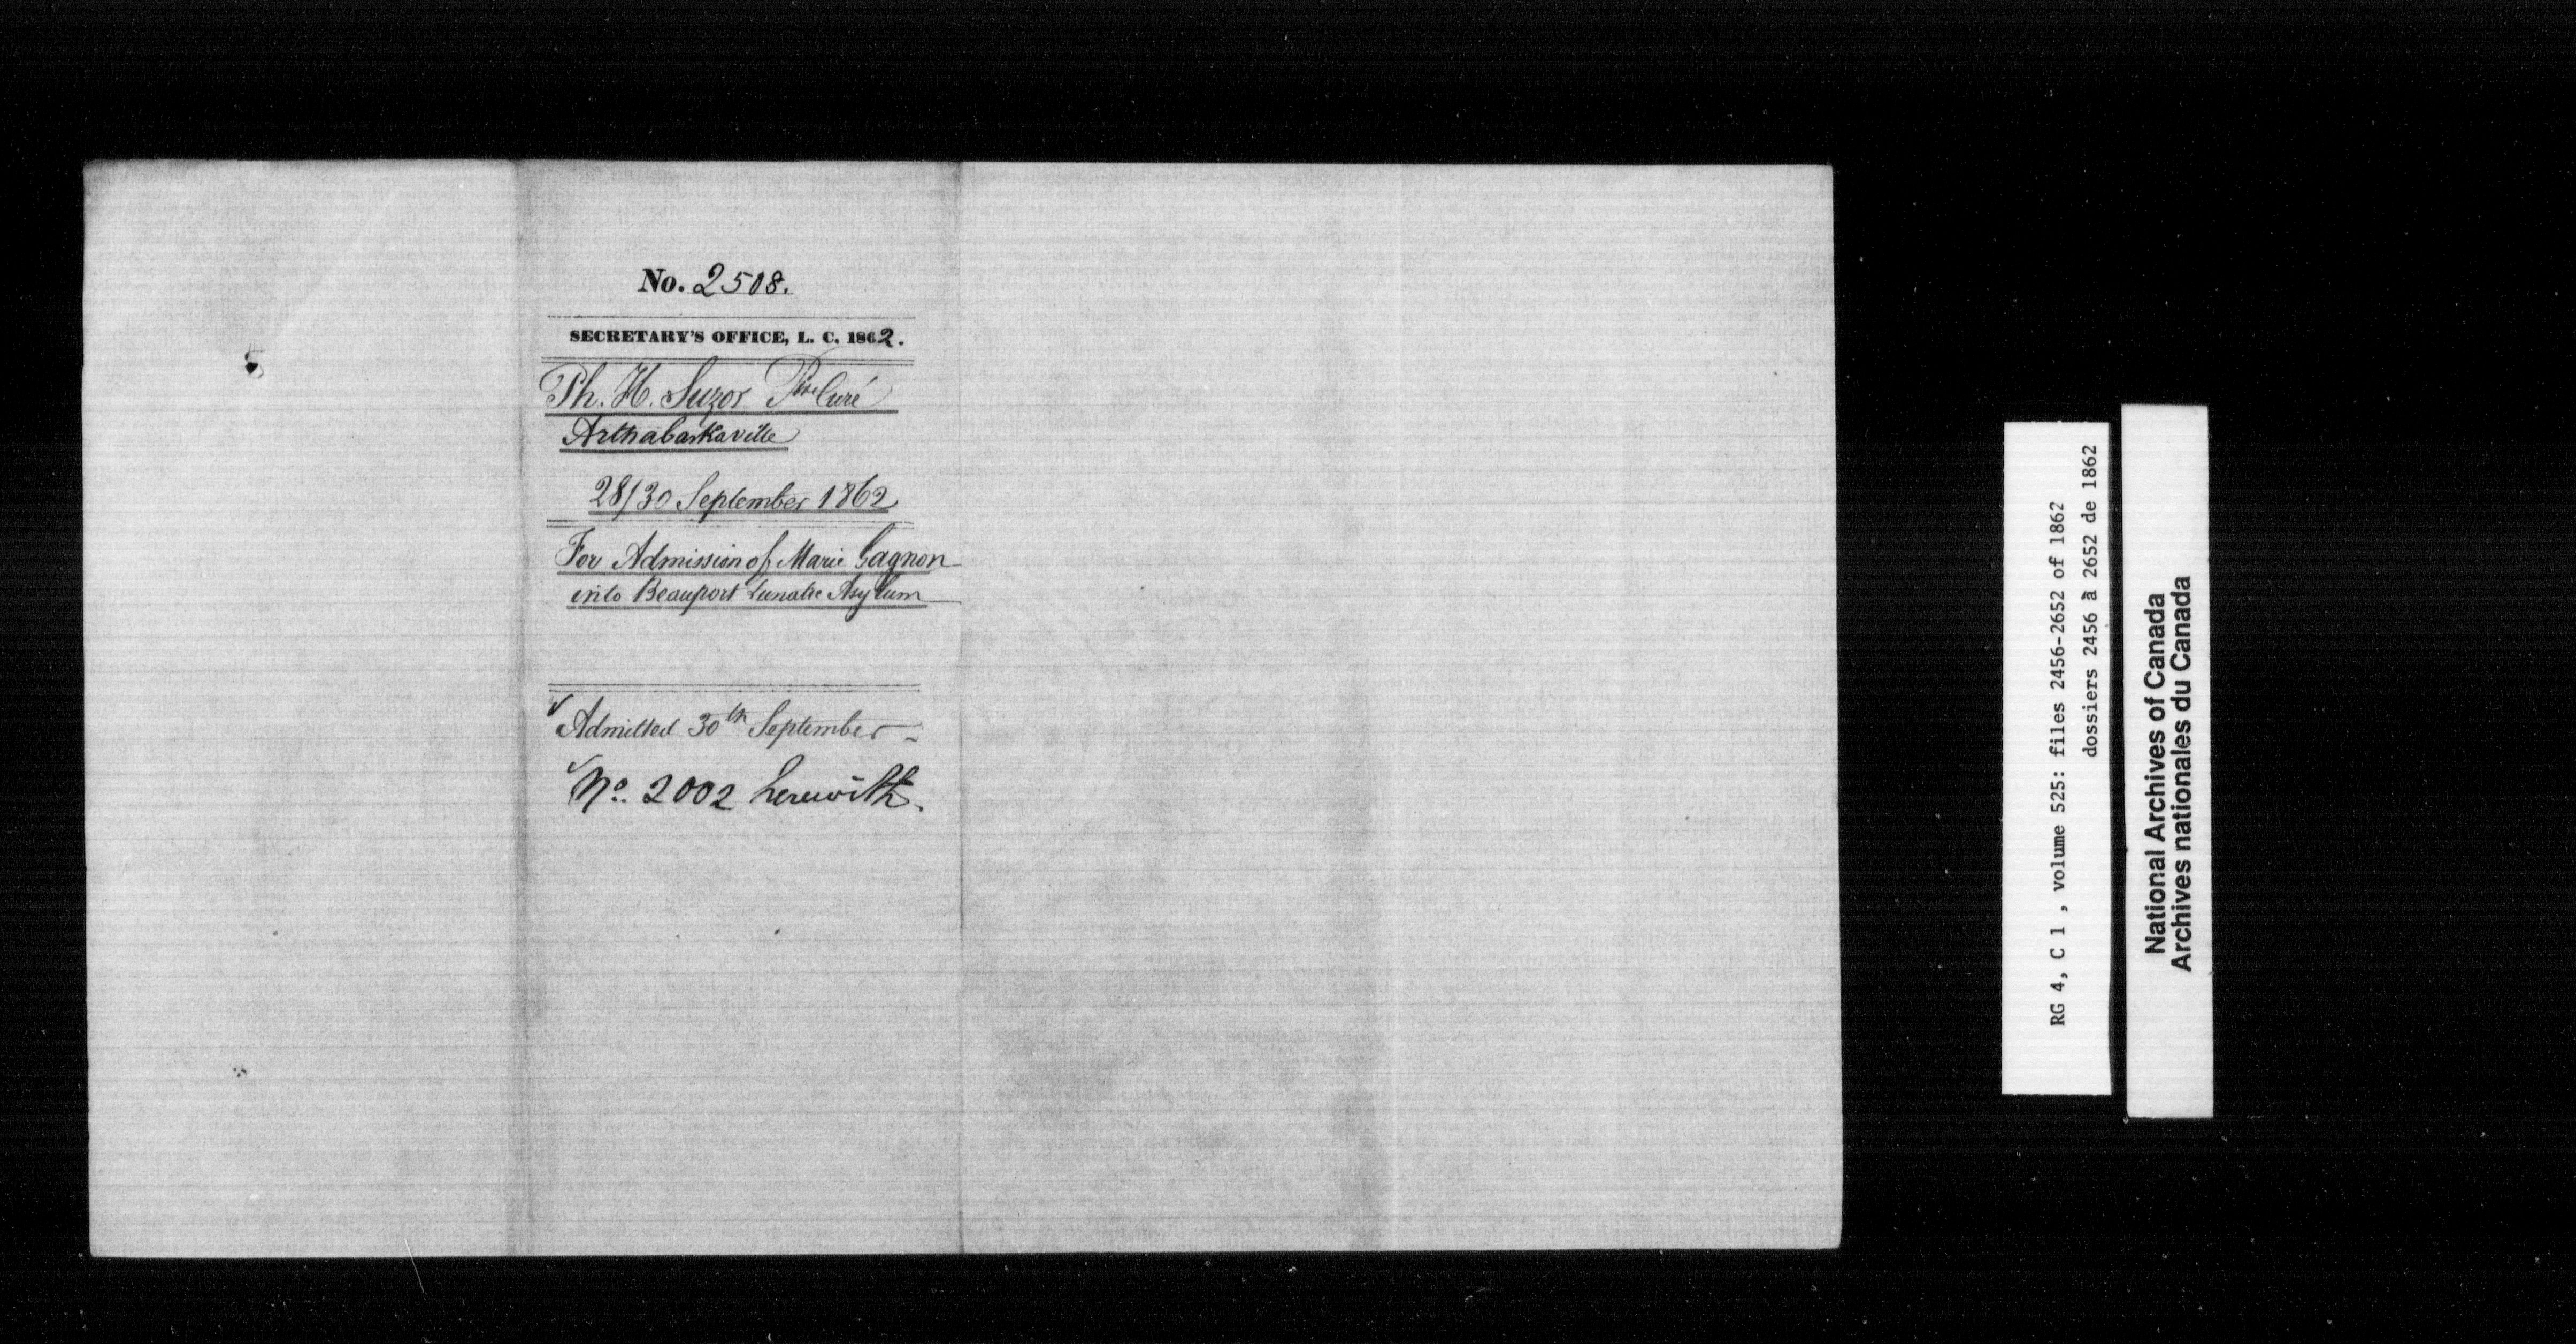 No. 2508.
SECRETARY'S OFFICE, L. C. 1862.
Ph. H. Suzor Ptre Curé
Arthabaskaville
28/30 September 1862
For Admission of Marie Gagnon
into Beauport Lunatic Asylum
Admitted 30th September -
No. 2002 herewith.
RG 4, C 1 , volume 525: files 2456-2652 of 1862
dossiers 2456 à 2652 de 1862
National Archives of Canada
Archives nationales du Canada